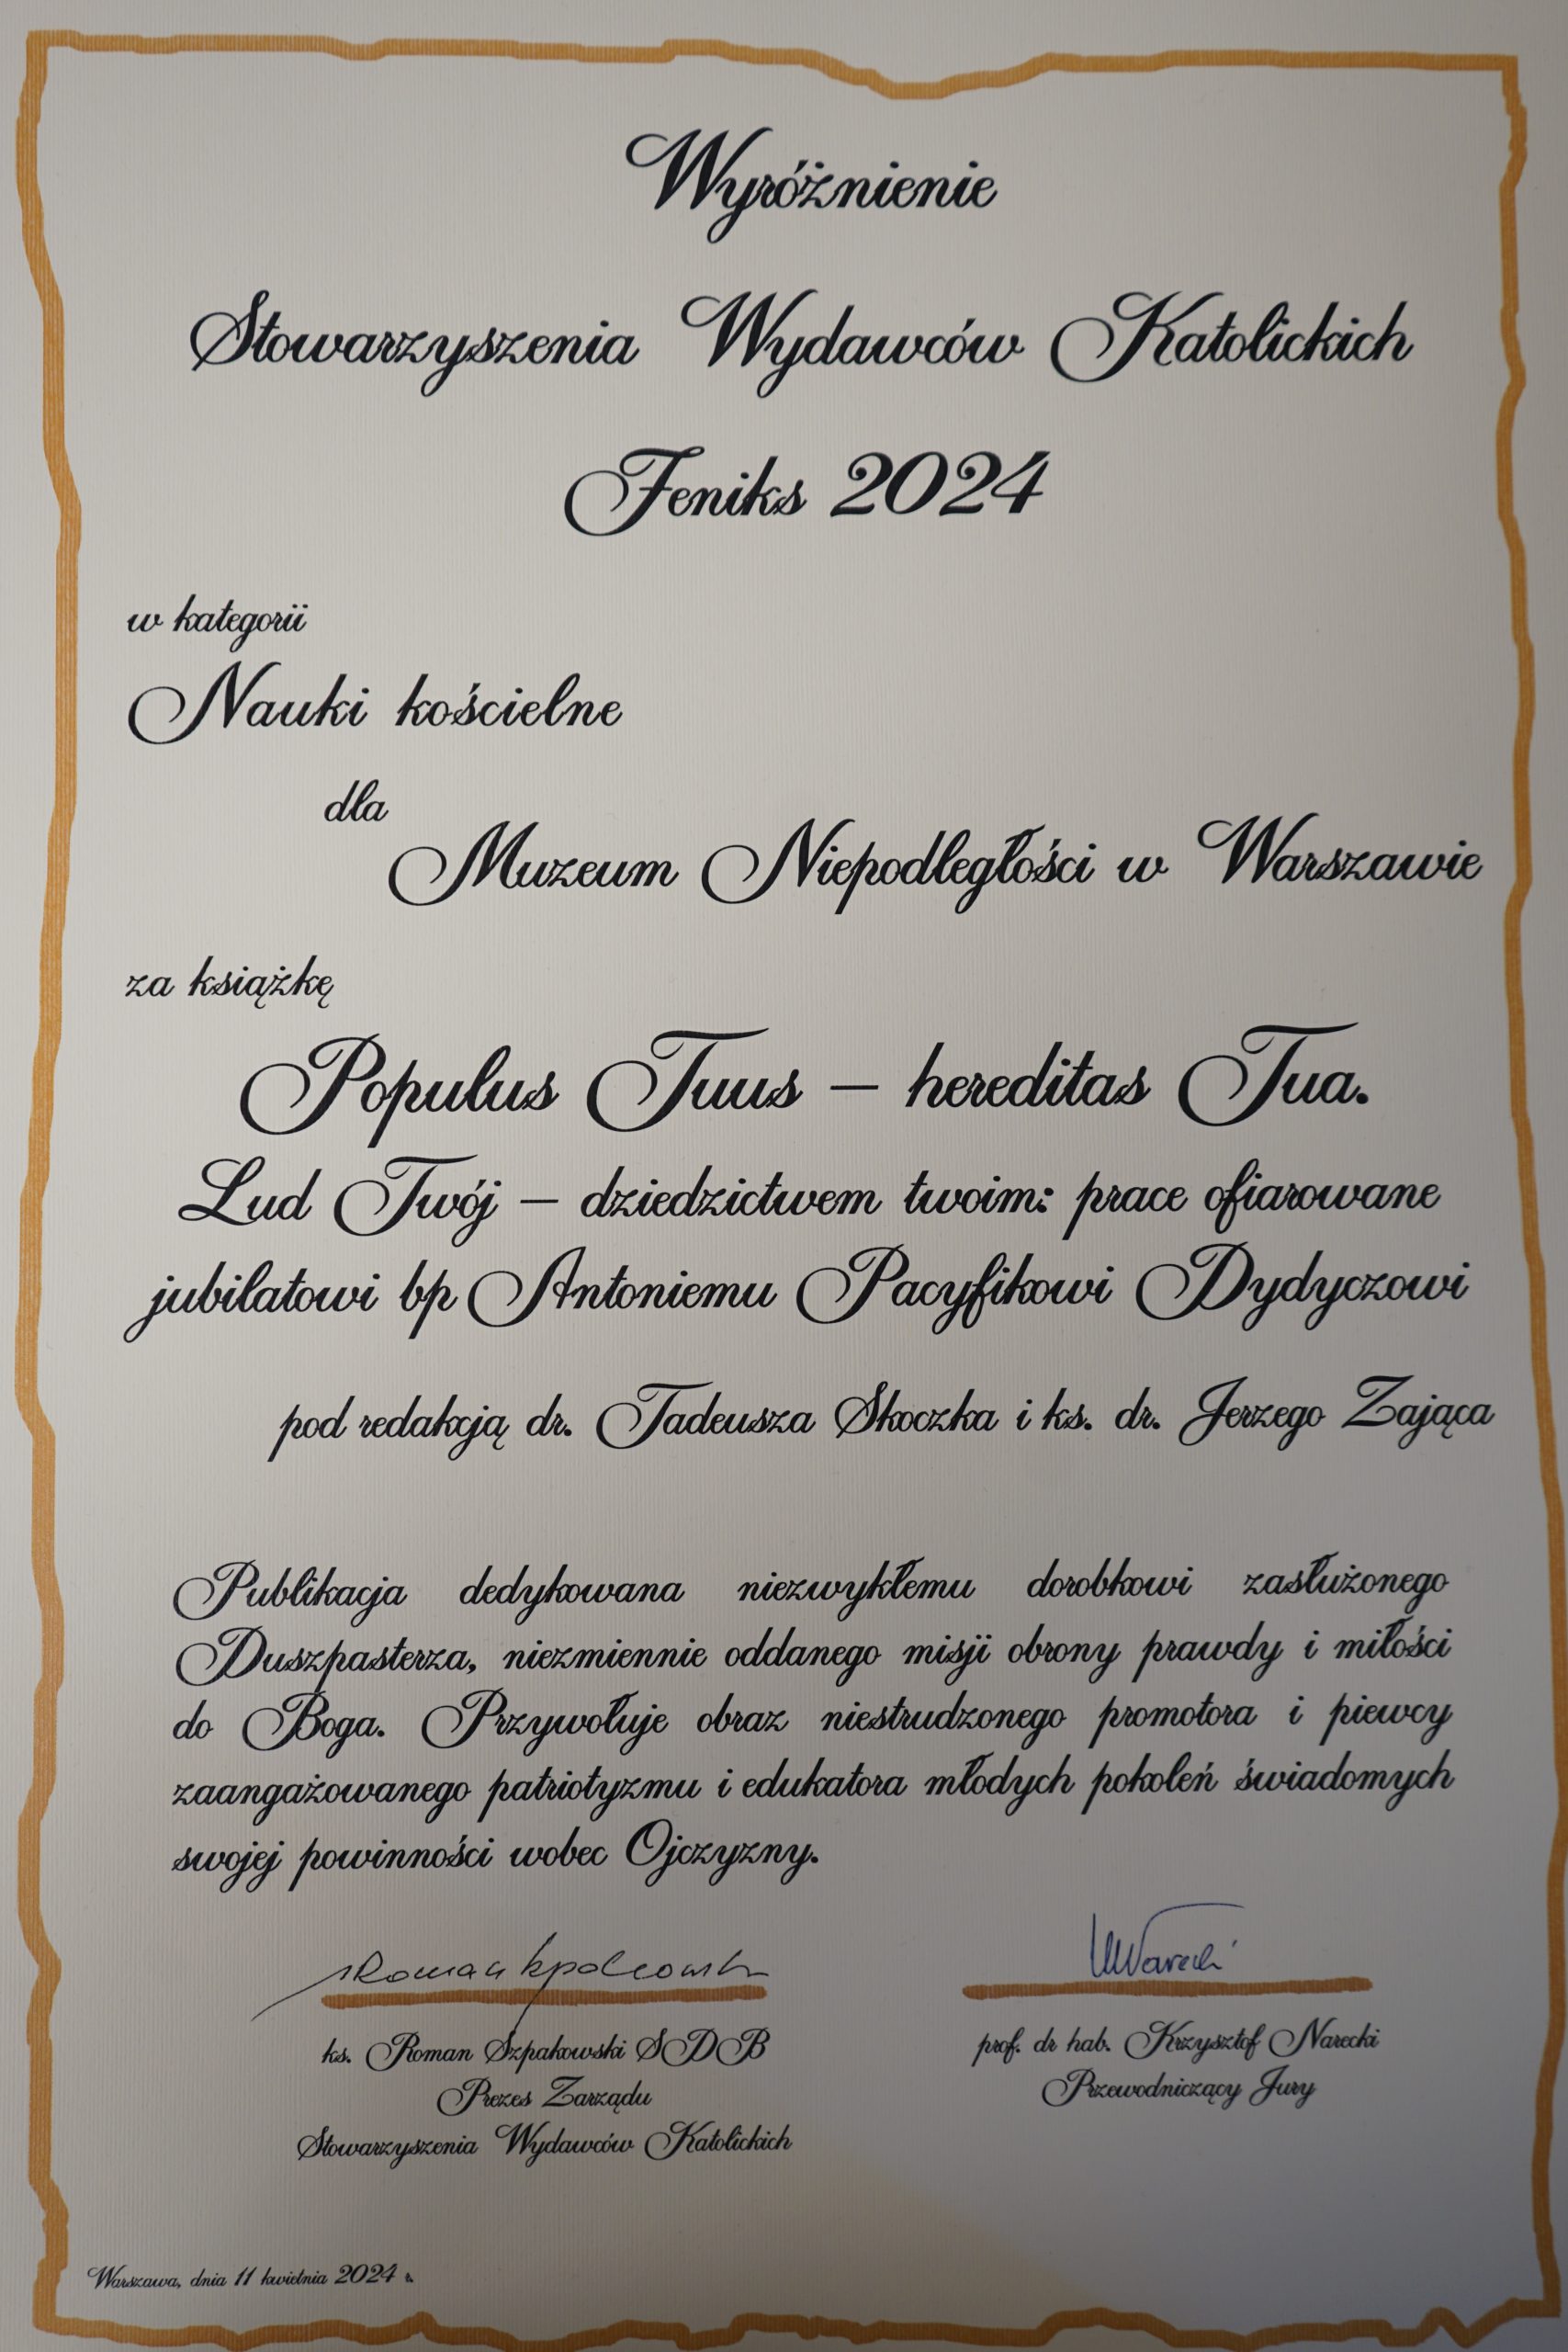 Wyróżnienie
Stowarzyszenia Wydawców Katolickich
Feniks 2024
w kategorii
Nauki kościelne
dla
Muzeum Niepodległości w Warszawie
za książkę
Populus Tuus – hereditas Tua.
Lud Twój – dziedzictwem twoim: prace ofiarowane
jubilatowi bp Antoniemu Pacyfikowi Dydyczowi
pod redakcją dr. Tadeusza Skoczka i ks. dr. Jerzego Zająca
Publikacja dedykowana niezwykłemu dorobkowi zasłużonego
Duszpasterza, niezmiennie oddanego misji obrony prawdy i miłości
do Boga. Przywołuje obraz niestrudzonego promotora i piewcy
zaangażowanego patriotyzmu i edukatora młodych pokoleń świadomych
swojej powinności wobec Ojczyzny.
ks. Roman Szpakowski SDB
Prezes Zarządu
Stowarzyszenia Wydawców Katolickich
prof. dr hab. Krzysztof Narecki
Przewodniczący Jury
Warszawa, dnia 11 kwietnia 2024 r.